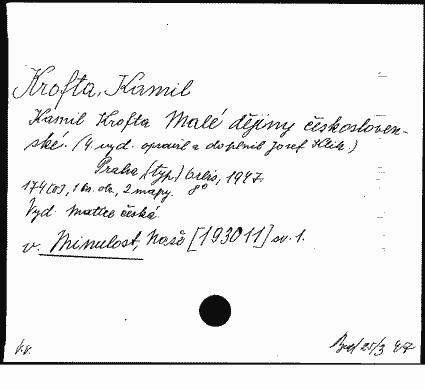 Krofta, Kamil
Kamil Krofta Malé dějiny českosloven-
ské. (4. vyd. opravil a doplnil Josef Klik.)
Praha, (typ.) Orbis, 1947.
174 [2], 1 bs. obr., 2 mapy. 8°
Vyd. Matice česká.
v. Minulost, Naše [193011] sv. 1.
25/3